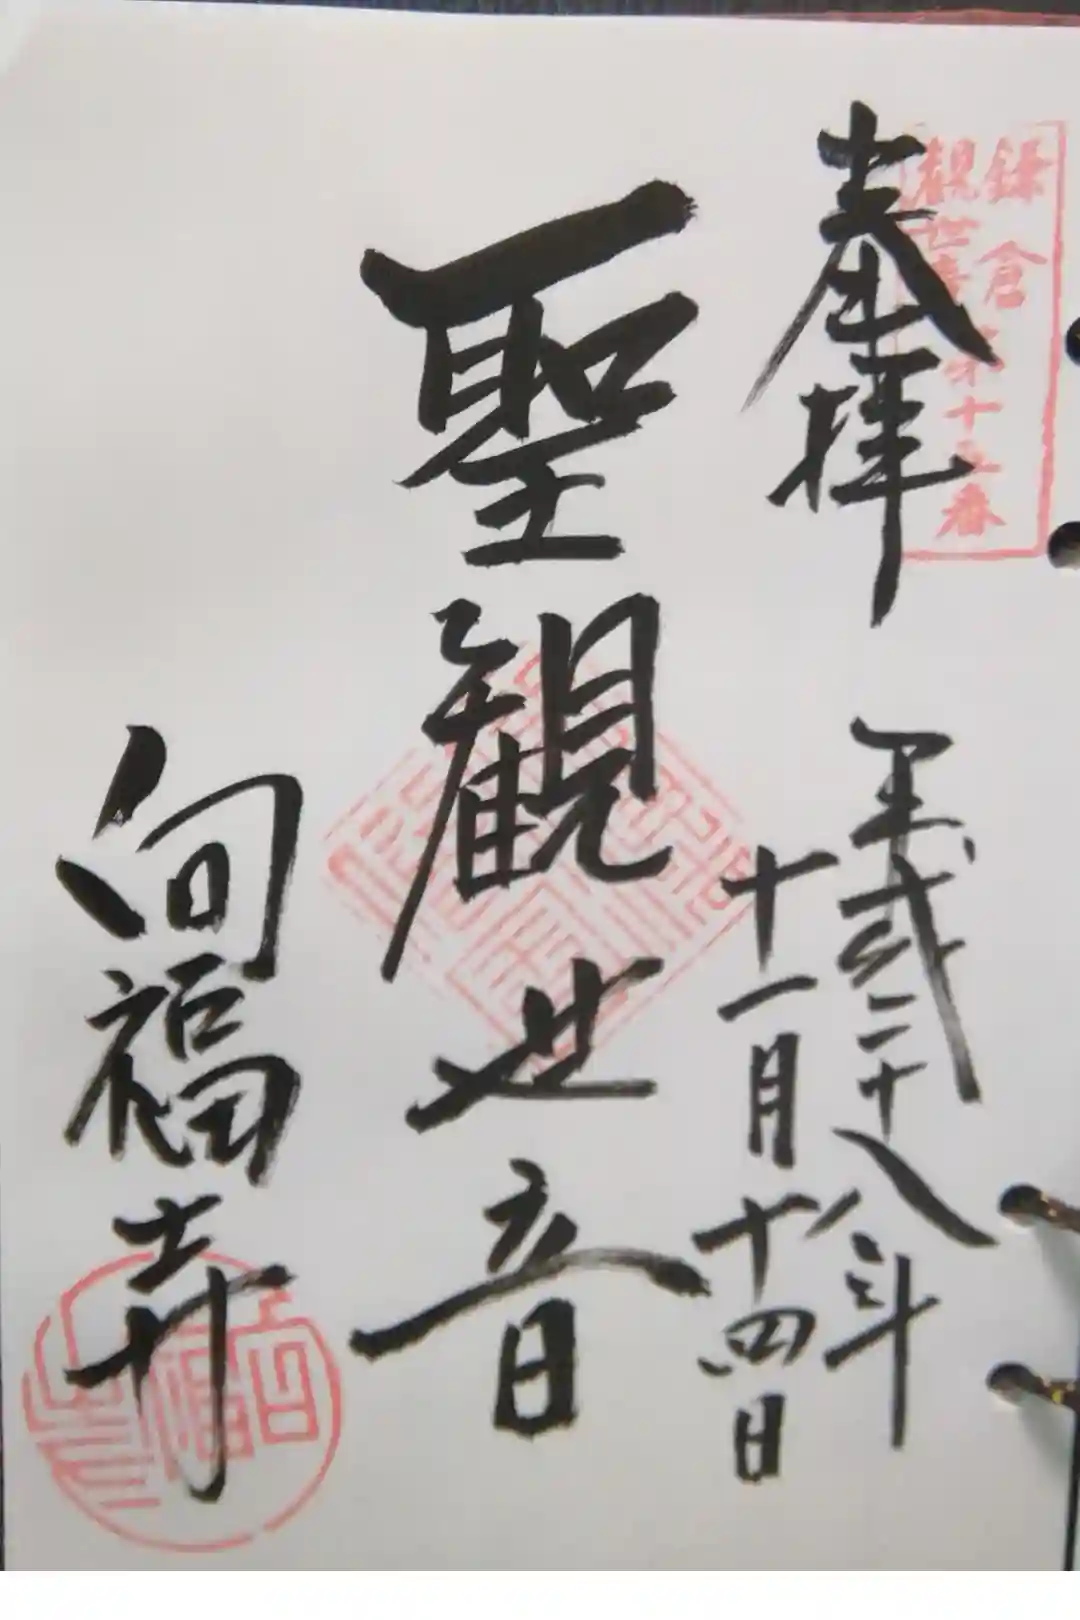 鎌倉
観世音第十五番
奉拝
平成二十八年
十一月十四日
聖観世音
向福寺